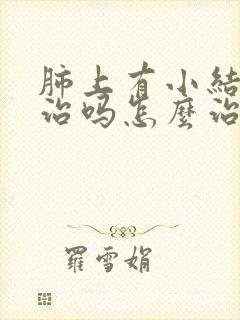 肺上有小結
治吗怎麼治
羅雪娟